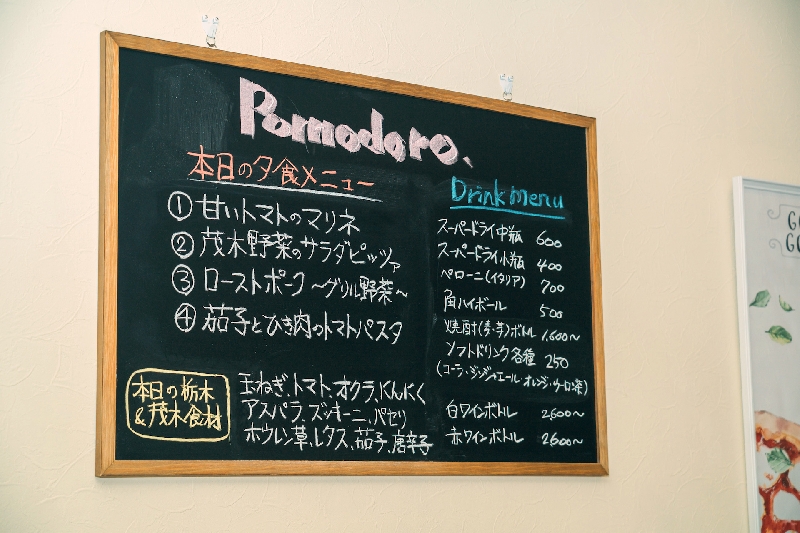 Pomodoro.
本日の夕食メニュー
① 甘いトマトのマリネ
② 茂木野菜のサラダピッツァ
③ ローストポーク 〜グリル野菜〜
④ 茄子とひき肉のトマトパスタ
本日の栃木
&茂木食材
玉ねぎ、トマト、オクラ、にんにく
アスパラ、ズッキーニ、パセリ
ホウレン草、レタス、茄子、唐辛子
Drink menu
スーパードライ中瓶 600
スーパードライ小瓶 400
ペローニ(イタリア) 700
角ハイボール 500
焼酎(麦・芋)ボトル 1,600〜
ソフトドリンク各種 250
(コーラ・ジンジャエール オレンジ・ウーロン茶)
白ワインボトル 2600〜
赤ワインボトル 2600〜